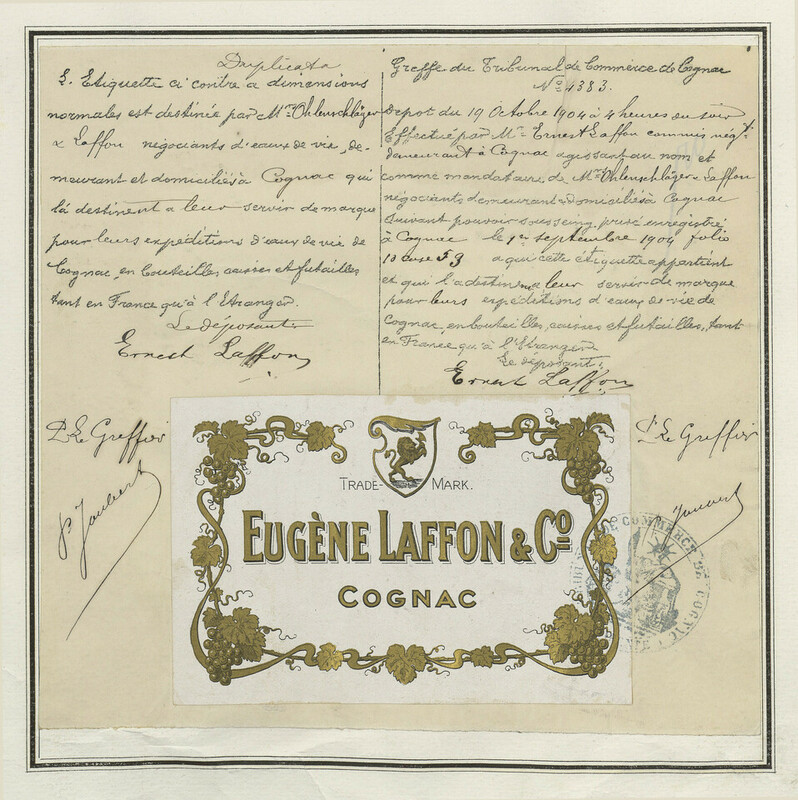 Duplicata
L. Etiquette ci contre a dimensions
normales est destinée par Mrs Ohlenschläger
& Laffon négociants d'eaux de vie, de-
meurant et domiciliés à Cognac qui
la destinent a leur servir de marque
pour leurs expéditions d'eaux de vie de
Cognac, en bouteilles caisses et futailles
tant en France qu'à l'Etranger.
Le déposant
Ernest Laffon
Greffe du Tribunal de Commerce de Cognac
No 4383.
Depot du 19 Octobre 1904 à 4 heures du soir
Effectué par Mr Ernest Laffon commis négt
demeurant à Cognac agissant au nom et
comme mandataire de Mrs Ohlenschläger & Laffon
négociants demeurant & domiciliés à Cognac
suivant pouvoir sous seing privé enregistré
à Cognac le 1er septembre 1904 folio
10 case 53 a qui cette étiquette appartient
et qui l'a destinée a leur servir de marque
pour leurs expéditions d'eaux de vie de
Cognac, en bouteilles, caisses et futailles, tant
en France qu'à l'Etranger.
Le déposant:
Ernest Laffon
Pr Le Greffier
Pr Le Greffier
TRADE-MARK.
EUGÈNE LAFFON & Co
COGNAC
DE COMMERCE DE COGNAC